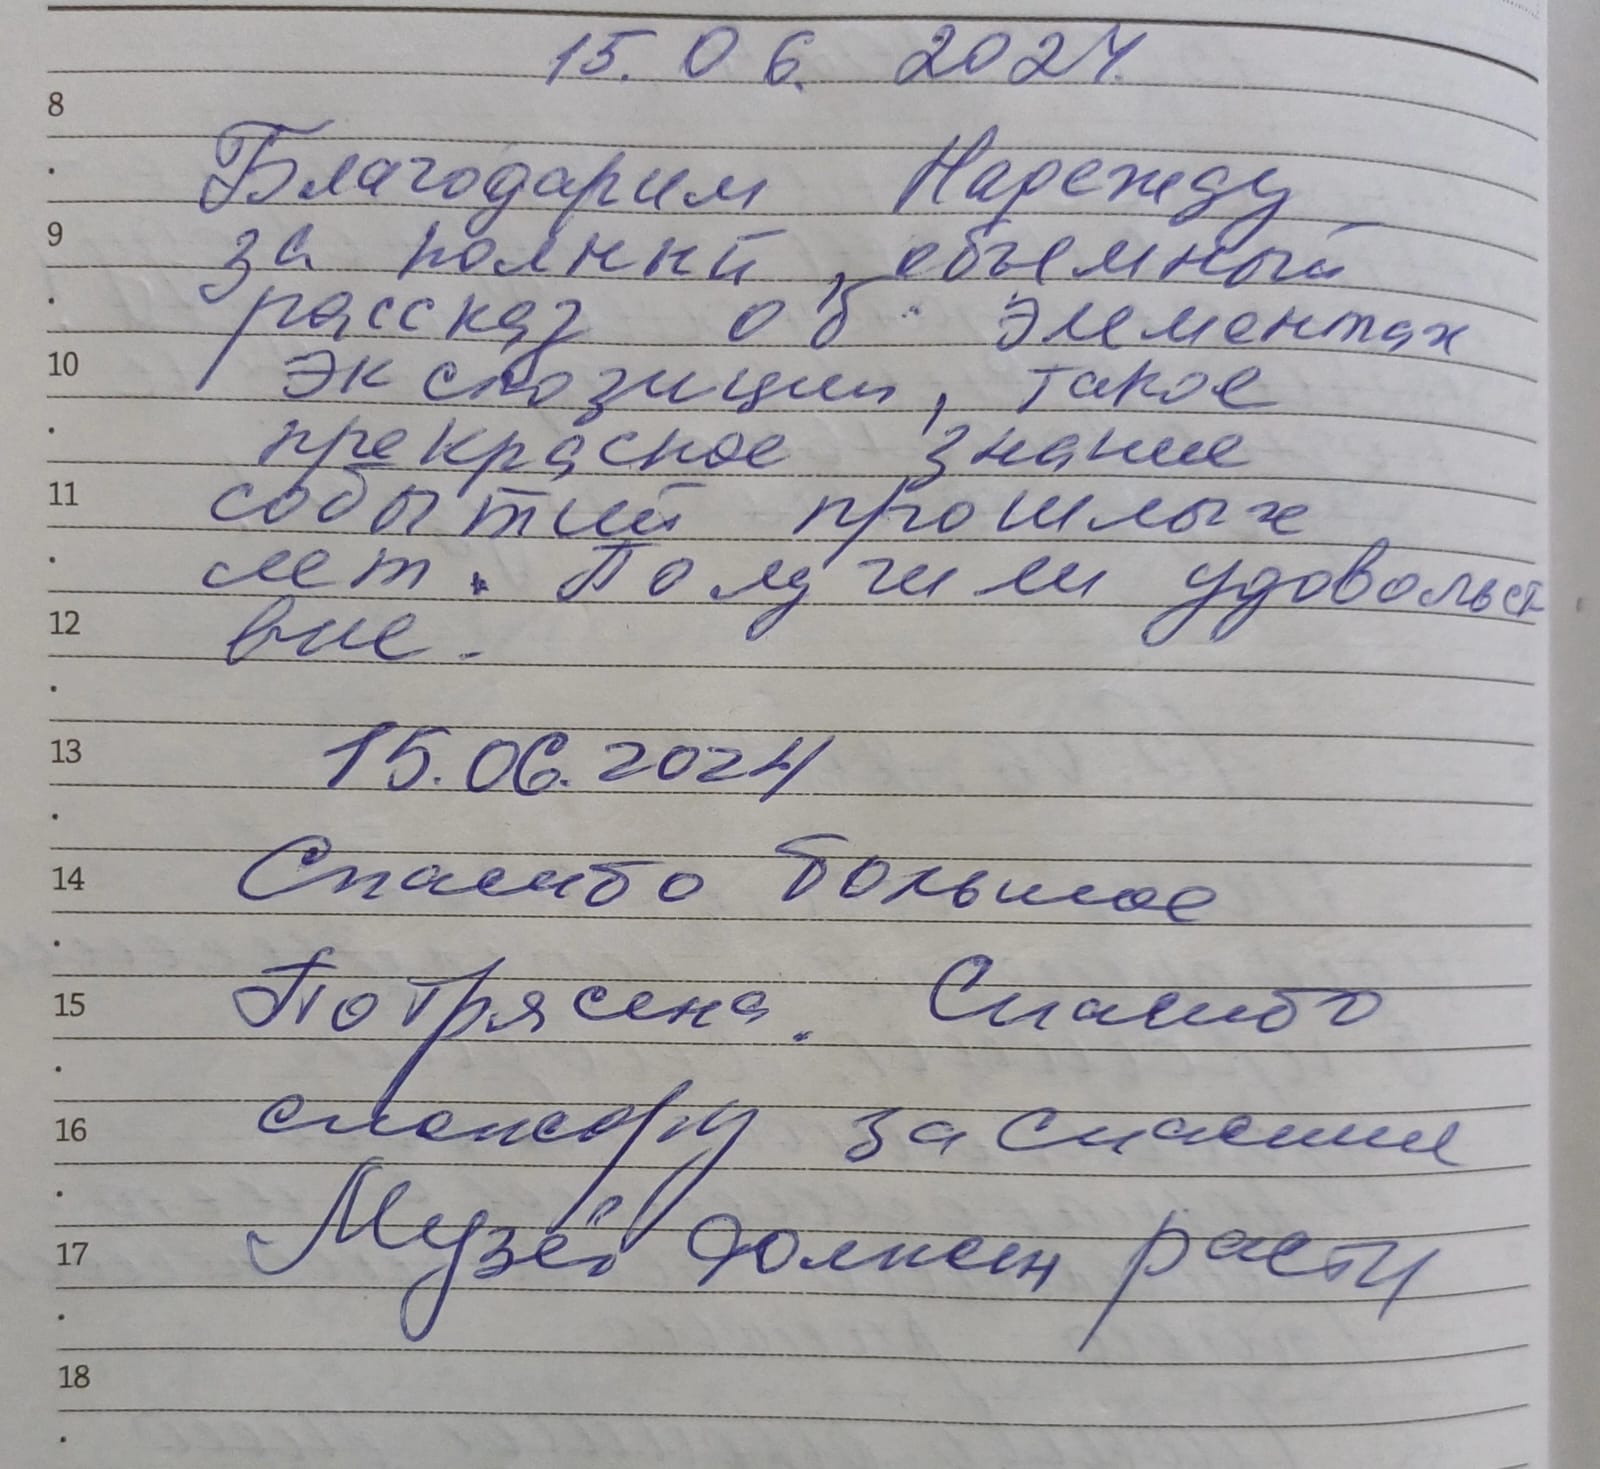 15.06.2024.
8
Благодарим Надежду
9
за полный, объемный
рассказ об элементах
10
экспозиции, такое
прекрасное знание
11
событий прошлых
лет. Получили удовольст
12
вие.
13
15.06.2024
14
Спасибо большое
15
Потрясена. Спасибо
16
спонсору за спасение
17
Музей должен расти
18